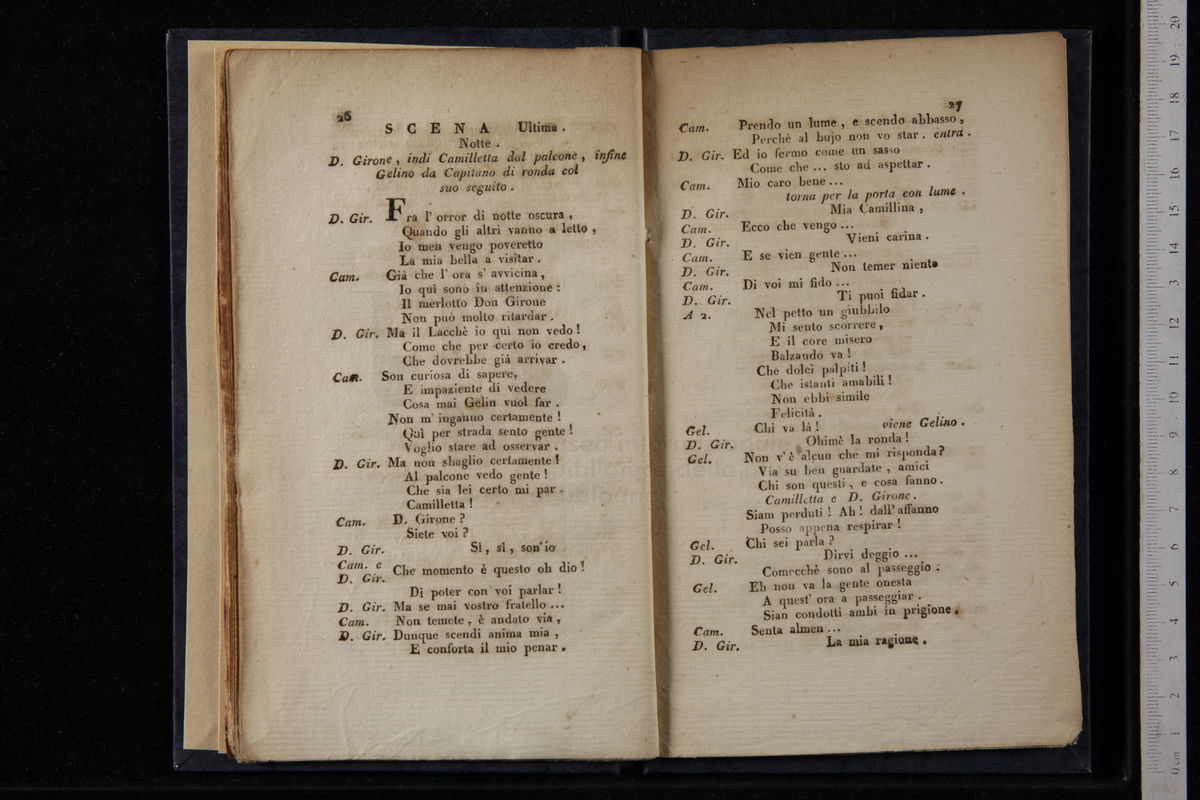 26
SCENA Ultima .
Notte .
D. Girone , indi Camilletta dal palcone , infine
Gelino da Capitano di ronda col
suo seguito .
D. Gir. Fra l' orror di notte oscura ,
Quando gli altri vanno a letto ,
Io men vengo poveretto
La mia bella a visitar .
Cam. Già che l' ora s' avvicina ,
Io quì sono in attenzione :
Il merlotto Don Girone
Non può molto ritardar .
D. Gir. Ma il Lacchè io quì non vedo !
Come che per certo io credo ,
Che dovrebbe già arrivar .
Cam. Son curiosa di sapere,
E impaziente di vedere
Cosa mai Gelin vuol far .
Non m' inganno certamente !
Quì per strada sento gente !
Voglio stare ad osservar .
D. Gir. Ma non sbaglio certamente !
Al palcone vedo gente !
Che sia lei certo mi par .
Camilletta !
Cam. D. Girone ?
Siete voi ?
D. Gir. Sì , sì , son' io
Cam. e
D. Gir. Che momento è questo oh dio !
Di poter con voi parlar !
D. Gir. Ma se mai vostro fratello ...
Cam. Non temete , è andato via ,
D. Gir. Dunque scendi anima mia ,
E conforta il mio penar .
27
Cam. Prendo un lume , e scendo abbasso ,
Perchè al bujo non vo star . entra .
D. Gir. Ed io fermo come un sasso
Come che ... sto ad aspettar .
Cam. Mio caro bene ...
torna per la porta con lume .
D. Gir. Mia Camillina ,
Cam. Ecco che vengo ...
D. Gir. Vieni carina .
Cam. E se vien gente ...
D. Gir. Non temer niente
Cam. Di voi mi fido ...
D. Gir. Ti puoi fidar .
A 2. Nel petto un giubbilo
Mi sento scorrere ,
E il core misero
Balzando va !
Che dolci palpiti !
Che istanti amabili !
Non ebbi simile
Felicità .
Gel. Chi va là ! viene Gelino .
D. Gir. Ohimè la ronda !
Gel. Non v' è alcun che mi risponda ?
Via su ben guardate , amici
Chi son questi , e cosa fanno .
Camilletta e D. Girone .
Siam perduti ! Ah ! dall' affanno
Posso appena respirar !
Gel. Chi sei parla ?
D. Gir. Dirvi deggio ...
Comecchè sono al passeggio :
Gel. Eh non va la gente onesta
A quest' ora a passeggiar .
Sian condotti ambi in prigione .
Cam. Senta almen ...
D. Gir. La mia ragione .
0 cm 1 2 3 4 5 6 7 8 9 10 11 12 13 14 15 16 17 18 19 20